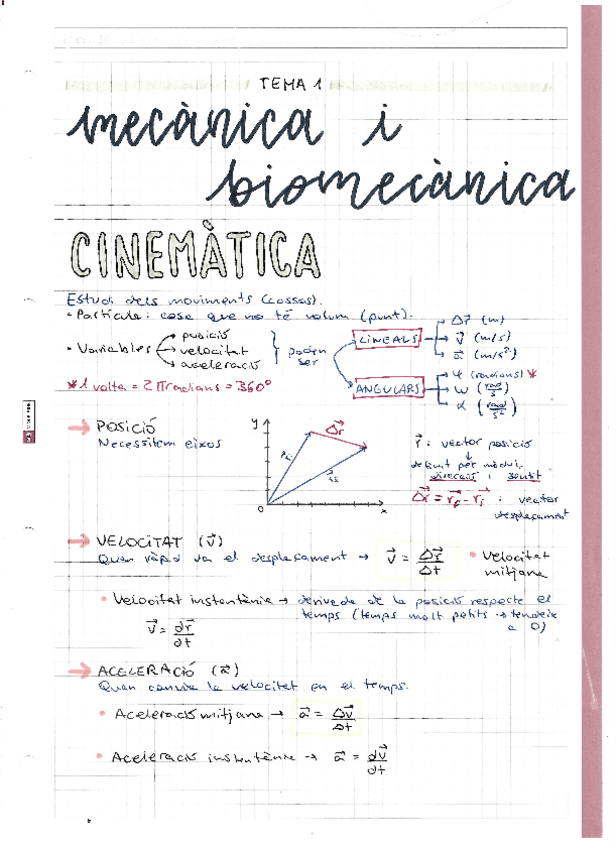 TEMA 1
mecànica i
biomecànica
CINEMÀTICA
Estudi dels moviments (cossos).
• Partícula: cosa que no té volum (punt).
• Variables
posició
velocitat
acceleració
poden
ser
LINEALS
Δr⃗ (m)
v⃗ (m/s)
a⃗ (m/s²)
ANGULARS
φ (radians) *
ω (rad/s)
α (rad/s²)
* 1 volta = 2π radians = 360°
→ POSICIÓ
Necessitem eixos
y
Δr⃗
0
x
r⃗: vector posició
definit per mòdul,
direcció i sentit
Δr⃗ = r⃗f - r⃗i : vector
desplaçament
→ VELOCITAT (v⃗)
Quan ràpid va el desplaçament → v⃗ = Δr⃗/Δt • Velocitat
mitjana
• Velocitat instantània → derivada de la posició respecte el
temps (temps molt petits → tendeix
a 0)
v⃗ = dr⃗/dt
→ ACELERACIÓ (a⃗)
Quan canvia la velocitat en el temps.
• Aceleració mitjana → a⃗ = Δv⃗/Δt
• Aceleració instantània → a⃗ = dv⃗/dt